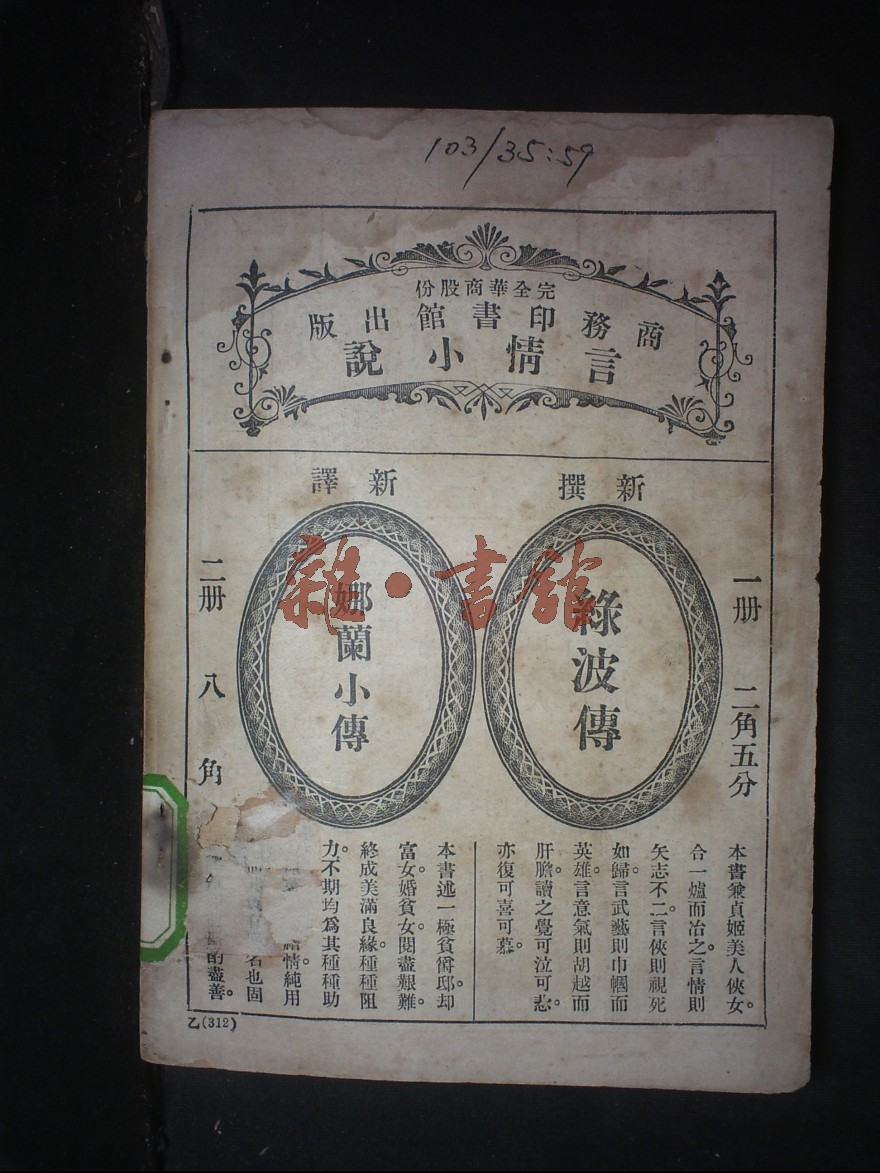 103/35:59
完全華商股份
商務印書館出版
言情小說
新撰
綠波傳
一册 二角五分
本書兼貞姬美人俠女。
合一爐而冶之。言情則
矢志不二。言俠則視死
如歸。言武藝則巾幗而
英雄。言意氣則胡越而
肝膽。讀之覺可泣可悲。
亦復可喜可慕。
新譯
娜蘭小傳
二册 八角
本書述一極貧爵邸。却
富女婚貧女。閱盡艱難。
終成美滿良緣。種種阻
力。不期均爲其種種助
情。純用
名也固
盡善。
乙(312)
雜·書館